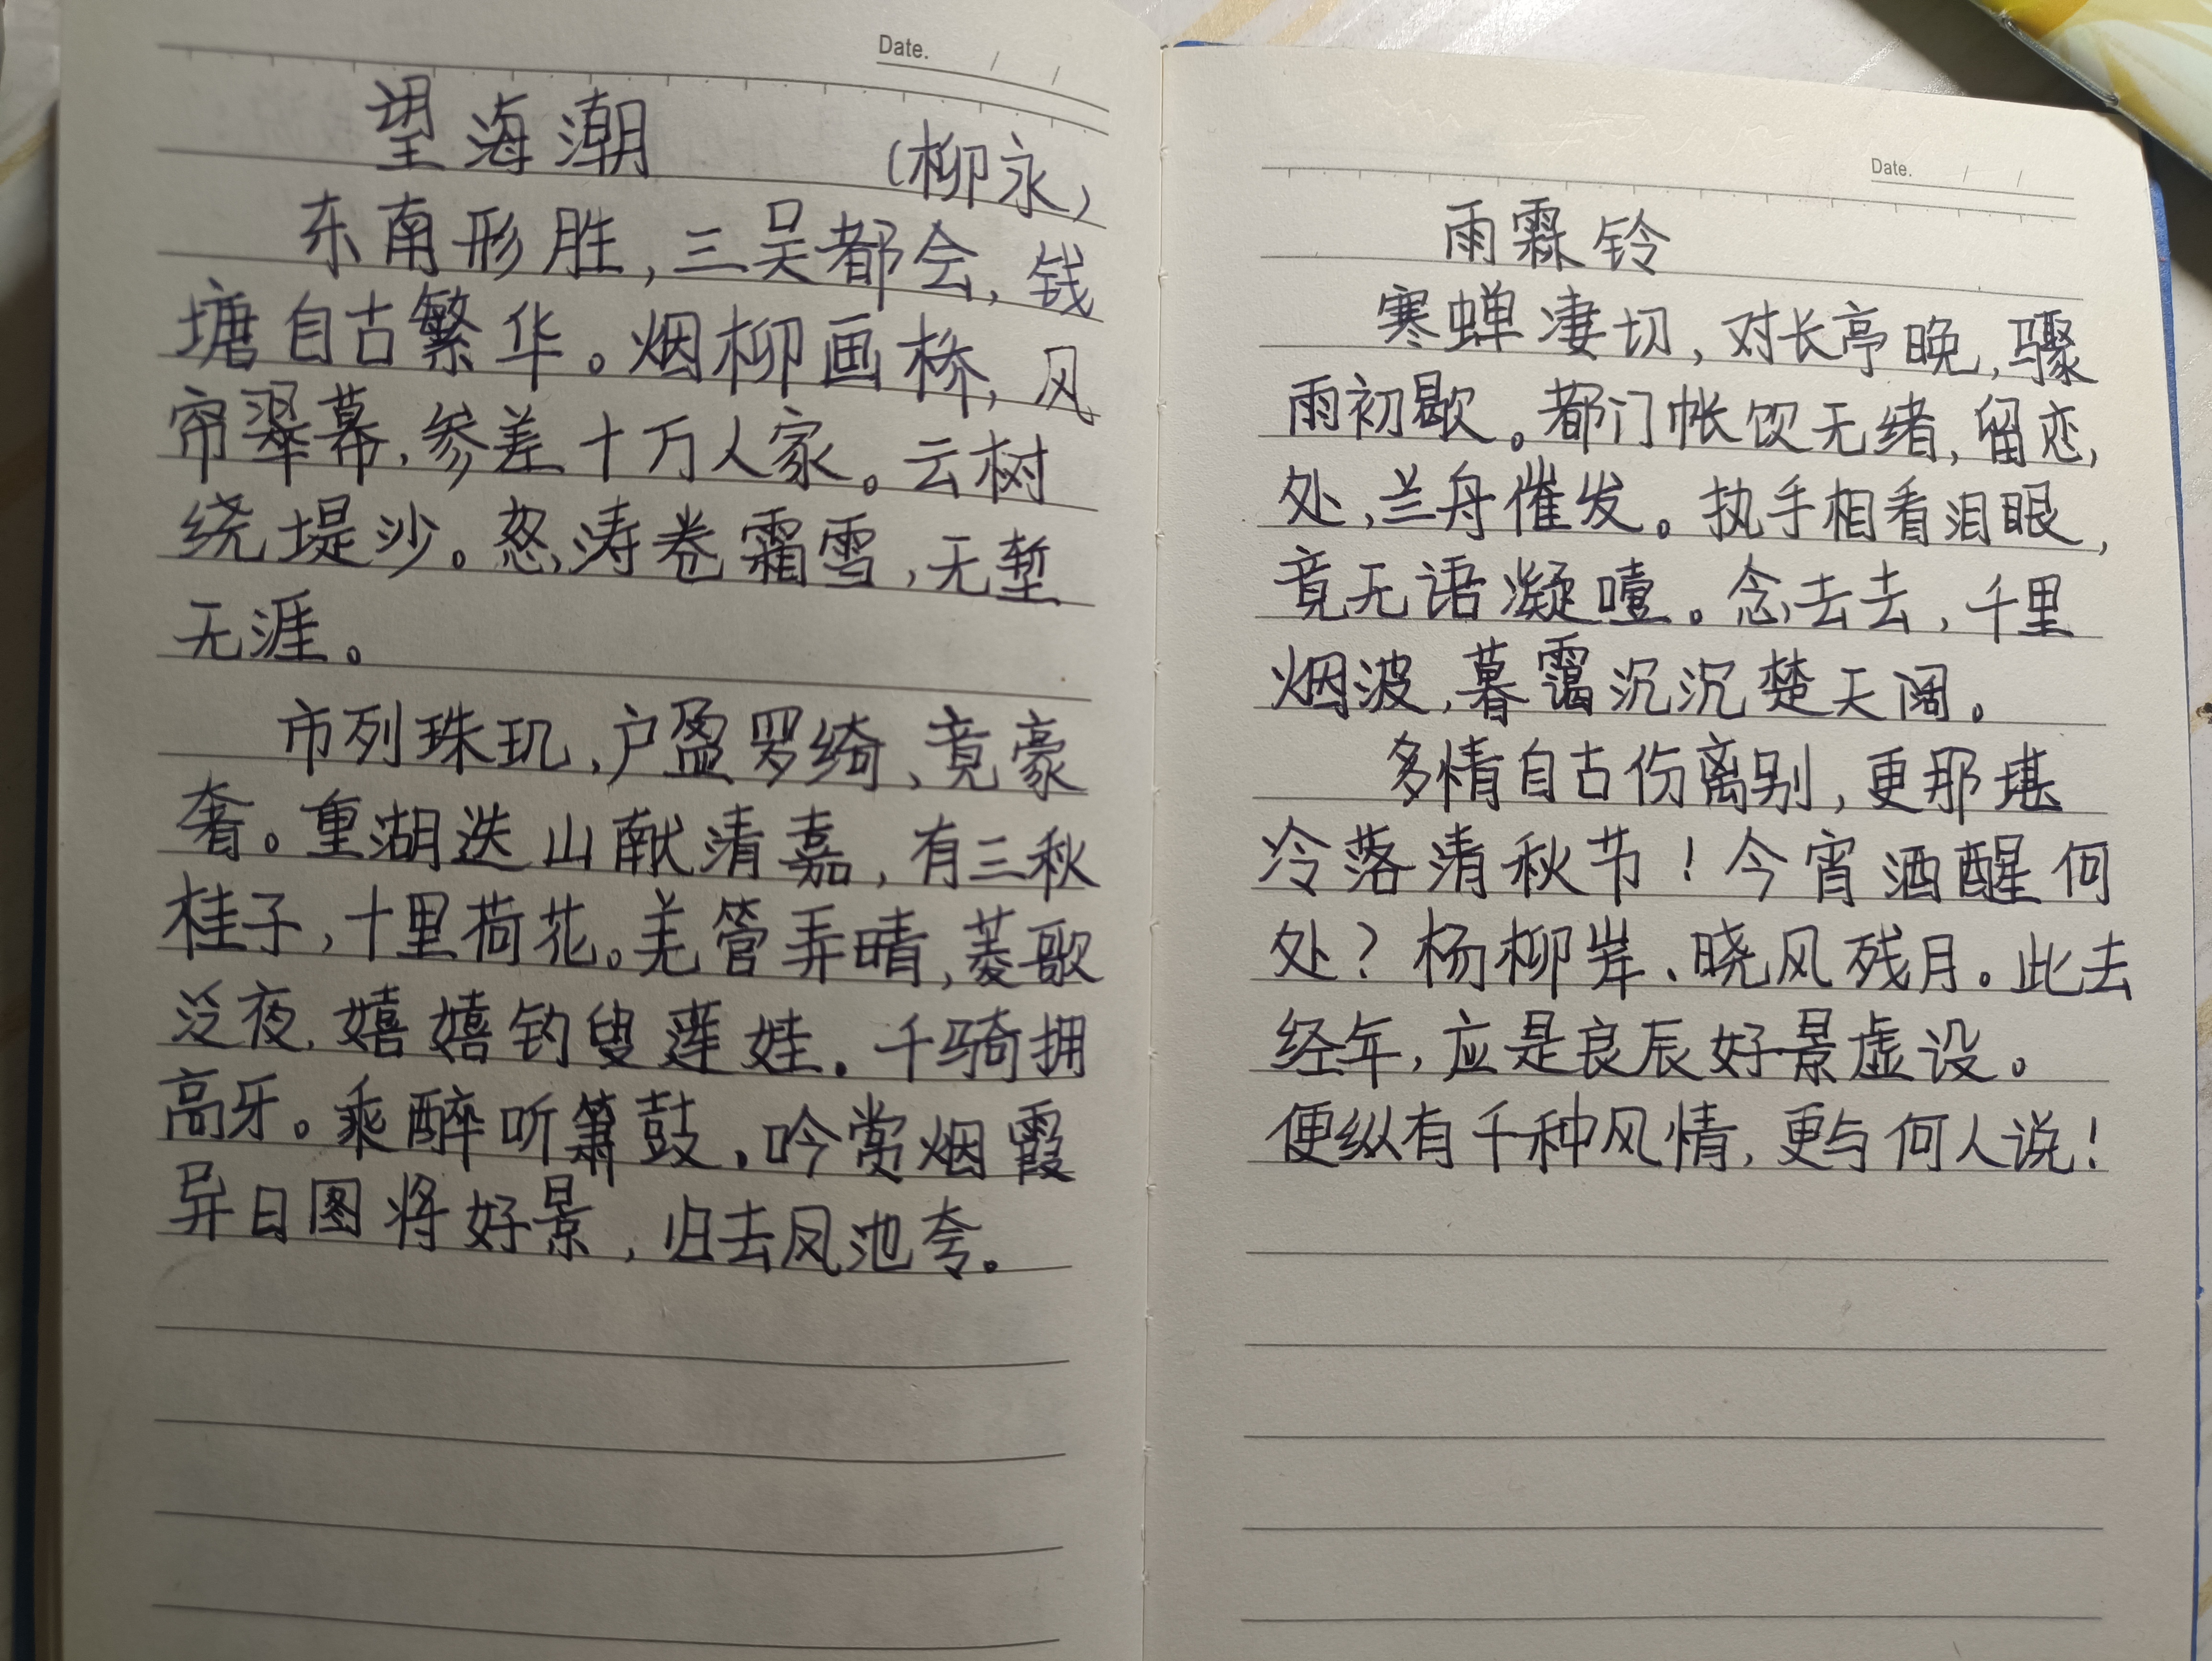 Date. / /
望海潮 (柳永)
东南形胜,三吴都会,钱
塘自古繁华。烟柳画桥,风
帘翠幕,参差十万人家。云树
绕堤沙。怒涛卷霜雪,无堑
无涯。
市列珠玑,户盈罗绮、竟豪
奢。重湖迭山献清嘉,有三秋
桂子,十里荷花。羌管弄晴,菱歌
泛夜,嬉嬉钓叟莲娃。千骑拥
高牙。乘醉听箫鼓,吟赏烟霞
异日图将好景,归去凤池夸。
Date. / /
雨霖铃
寒蝉凄切,对长亭晚,骤
雨初歇。都门帐饮无绪,留恋,
处,兰舟催发。执手相看泪眼,
竟无语凝噎。念去去,千里
烟波,暮霭沉沉楚天阔。
多情自古伤离别,更那堪
冷落清秋节!今宵酒醒何
处?杨柳岸、晓风残月。此去
经年,应是良辰好景虚设。
便纵有千种风情,更与何人说!